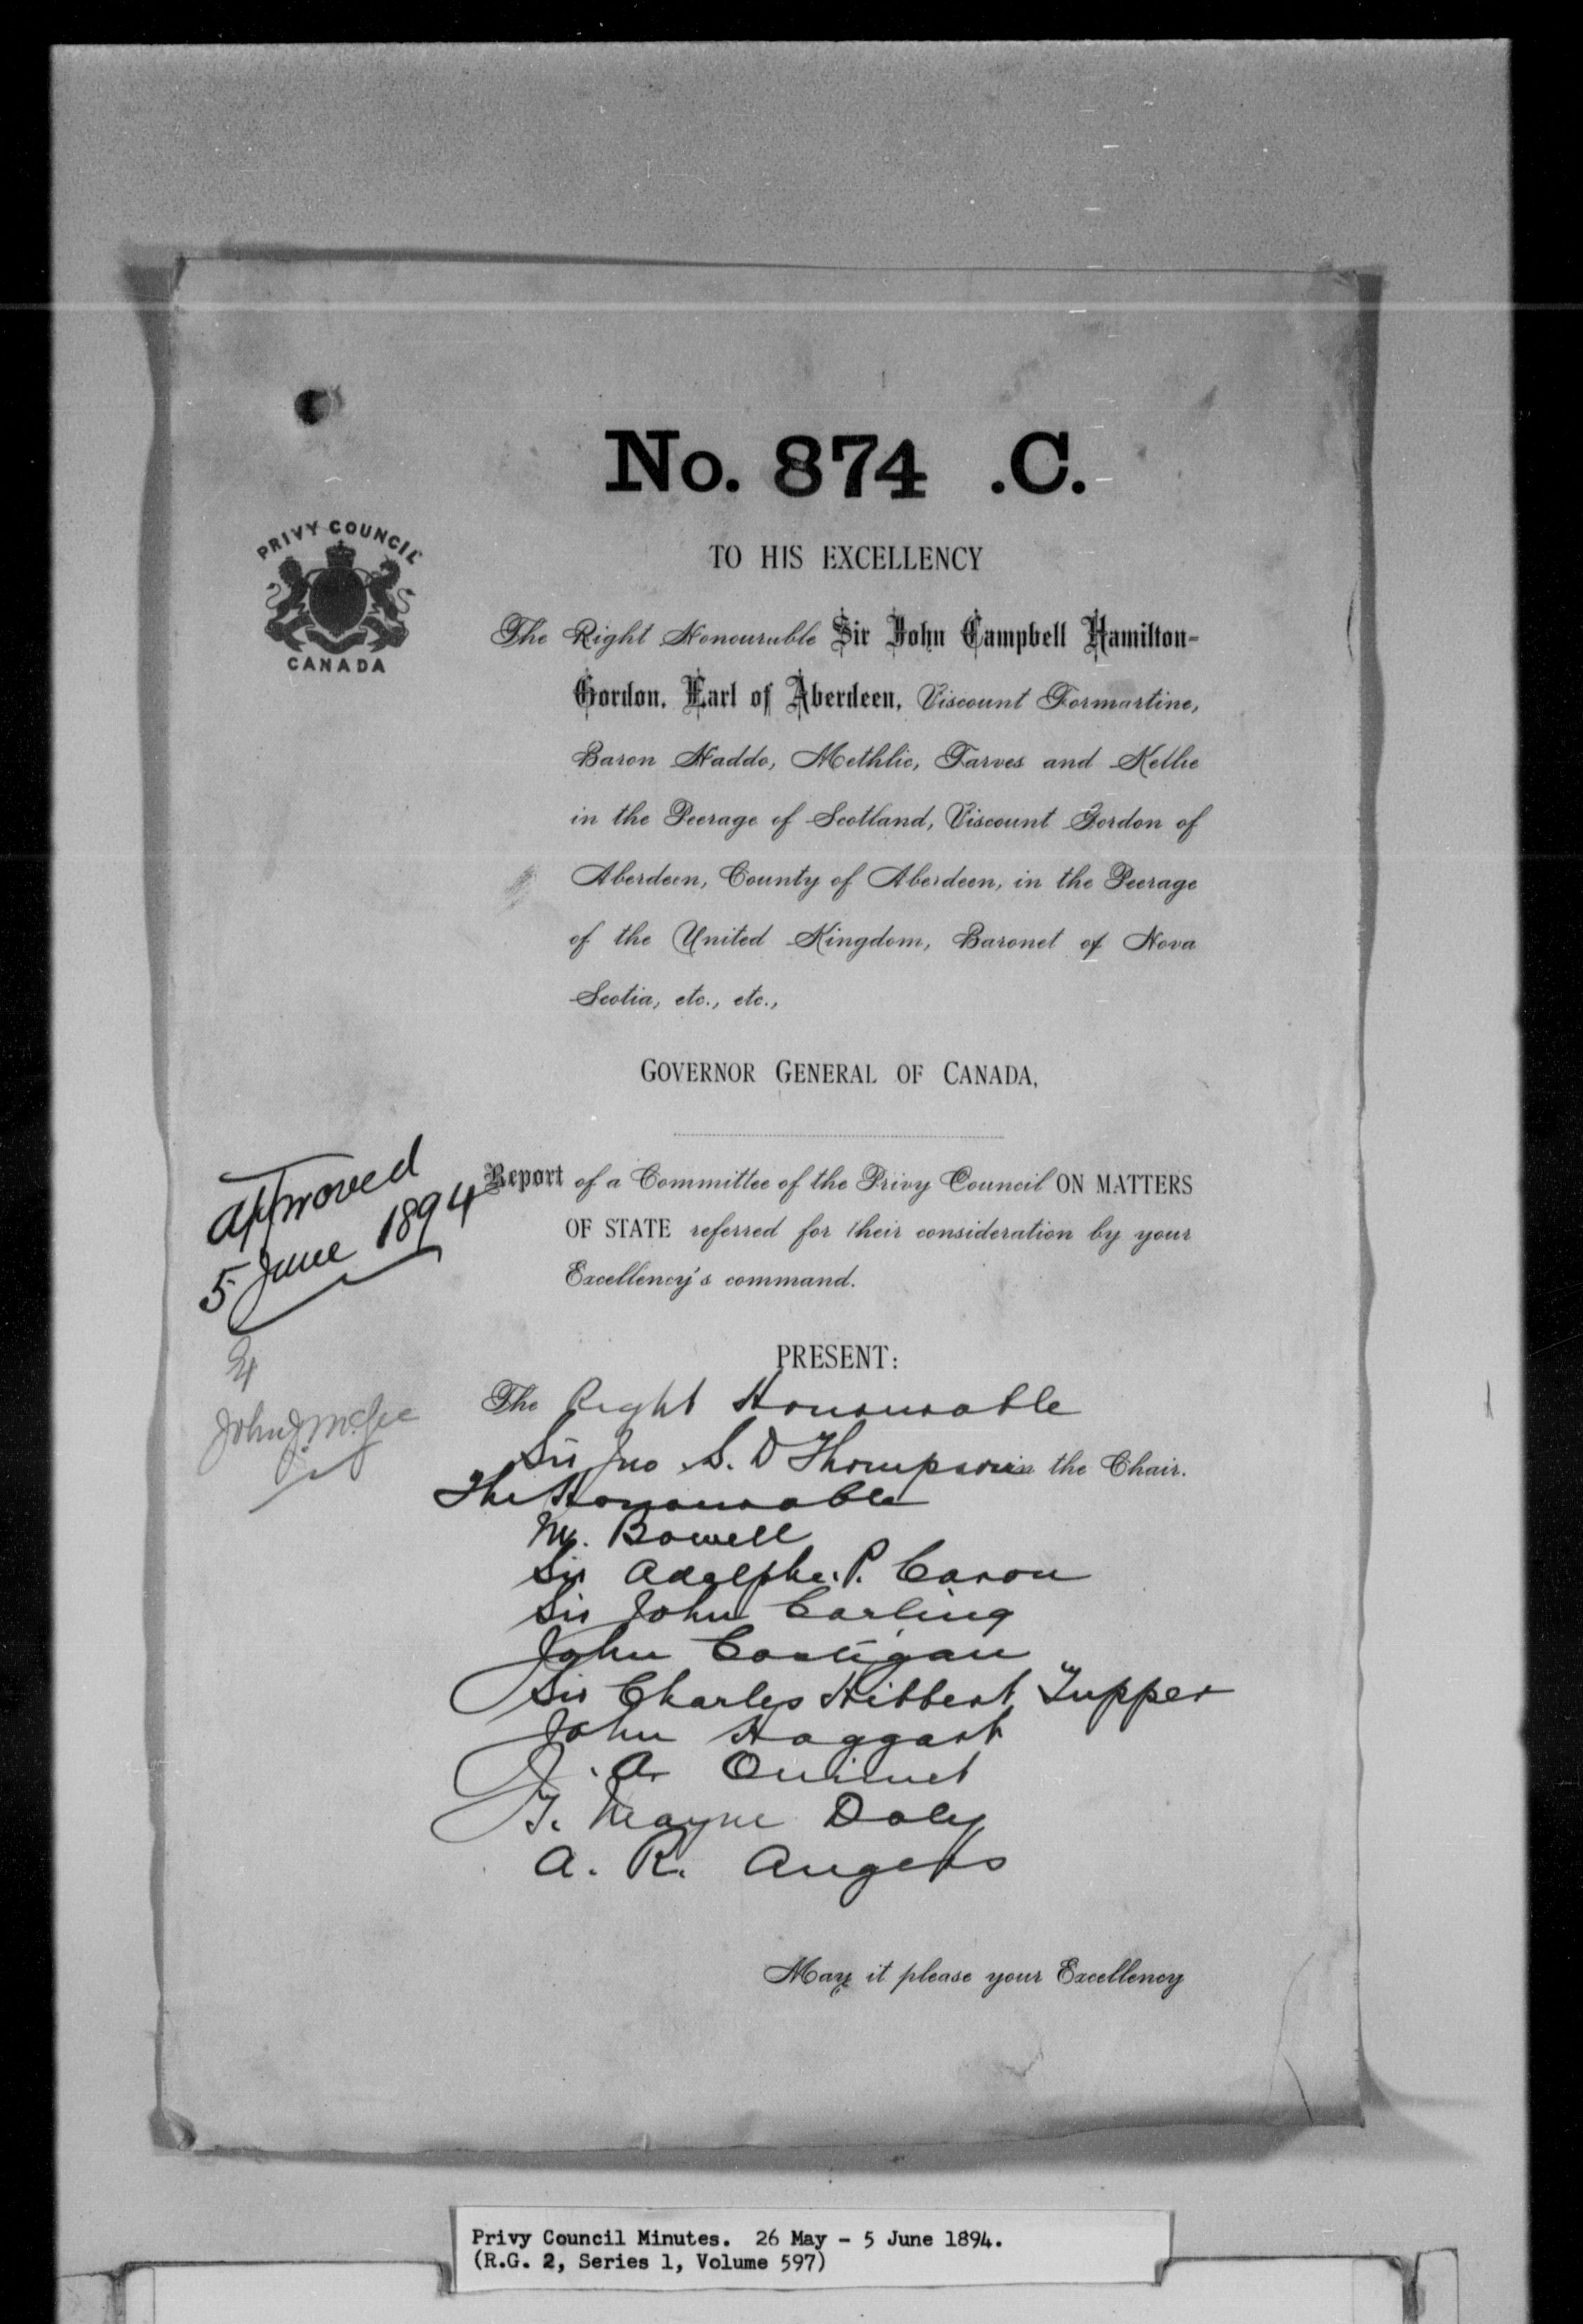 No. 874 .C.
PRIVY COUNCIL
CANADA
TO HIS EXCELLENCY
The Right Honourable Sir John Campbell Hamilton-
Gordon, Earl of Aberdeen, Viscount Formartine,
Baron Haddo, Methlic, Tarves and Kellie
in the Peerage of Scotland, Viscount Gordon of
Aberdeen, County of Aberdeen, in the Peerage
of the United Kingdom, Baronet of Nova
Scotia, etc., etc.,
GOVERNOR GENERAL OF CANADA,
approved
5 June 1894
John J McGee
Report of a Committee of the Privy Council ON MATTERS
OF STATE referred for their consideration by your
Excellency's command.
PRESENT:
The Right Honourable
Sir Jno S. D Thompson in the Chair.
The Honourable
M. Bowell
Sir Adolphe P. Caron
Sir John Carling
John Costigan
Sir Charles Hibbert Tupper
John Haggart
J. A. Ouimet
T. Mayne Daly
A. R. Angers
May it please your Excellency
Privy Council Minutes. 26 May - 5 June 1894.
(R.G. 2, Series 1, Volume 597)